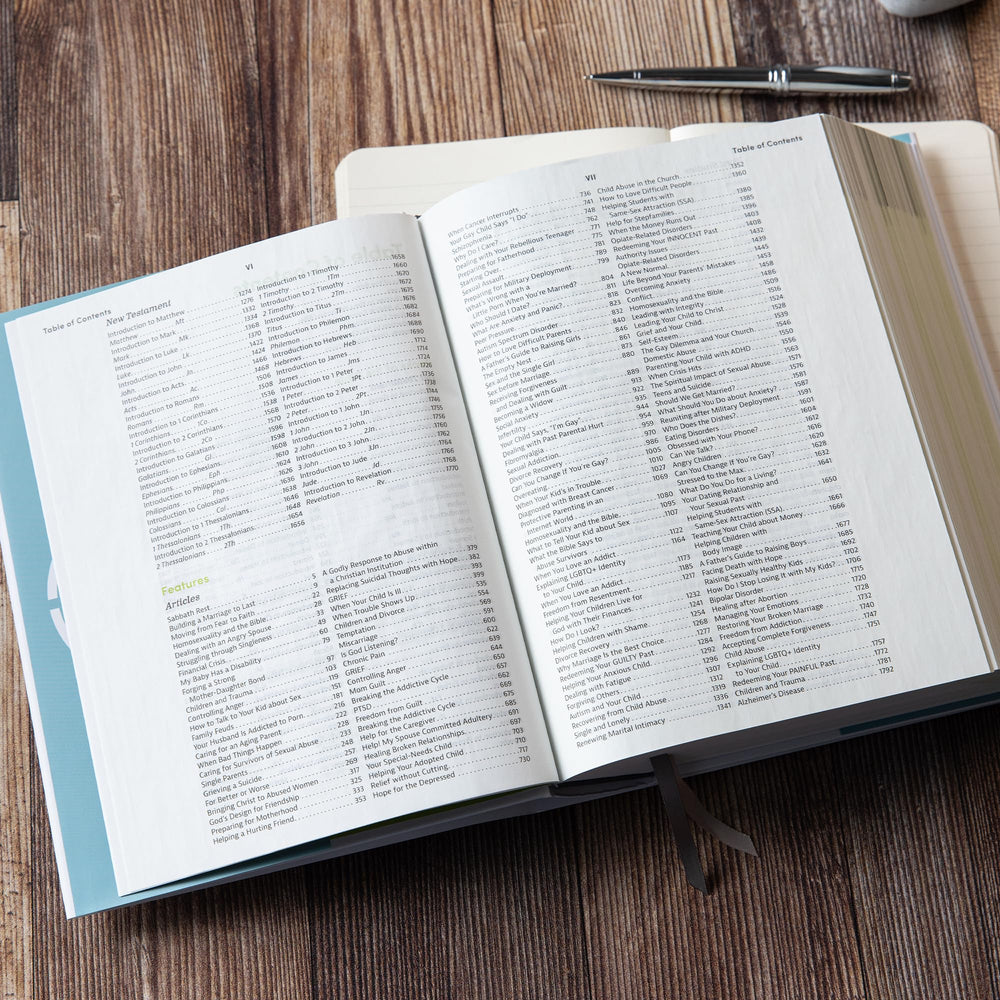 VI
Table of Contents
New Testament
Introduction to Matthew 1274
Matthew Mt 1276
Introduction to Mark 1332
Mark Mk 1334
Introduction to Luke 1368
Luke Lk 1370
Introduction to John 1422
John Jn 1424
Introduction to Acts 1466
Acts Ac 1468
Introduction to Romans 1506
Romans Rm 1508
Introduction to 1 Corinthians 1536
1 Corinthians 1Co 1538
Introduction to 2 Corinthians 1568
2 Corinthians 2Co 1570
Introduction to Galatians 1596
Galatians Gl 1598
Introduction to Ephesians
Ephesians Eph
Introduction to Philippians
Philippians Php
Introduction to Colossians
Colossians Col
Introduction to 1 Thessalonians
1 Thessalonians 1Th
Introduction to 2 Thessalonians 1654
2 Thessalonians 2Th 1656
Introduction to 1 Timothy 1658
1 Timothy 1Tm 1660
Introduction to 2 Timothy 1667
2 Timothy 2Tm 1670
Introduction to Titus 1675
Titus Ti 1676
Introduction to Philemon 1682
Philemon Phm 1684
Introduction to Hebrews 1688
Hebrews Heb 1690
Introduction to James 1712
James Jms 1714
Introduction to 1 Peter 1724
1 Peter 1Pt 1726
Introduction to 2 Peter 1736
2 Peter 2Pt 1738
Introduction to 1 John 1744
1 John 1Jn 1746
Introduction to 2 John 1755
2 John 2Jn 1756
Introduction to 3 John
3 John 3Jn
Introduction to Jude 1764
Jude Jd 1766
Introduction to Revelation 1768
Revelation Rv 1770
Features
Articles
Sabbath Rest 5
Building a Marriage to Last 9
Moving from Fear to Faith 22
Homosexuality and the Bible 28
Dealing with an Angry Spouse 33
Struggling through Singleness 49
Financial Crisis 60
My Baby Has a Disability 79
Forging a Strong
Mother-Daughter Bond 97
Children and Trauma 103
Controlling Anger 119
How to Talk to Your Kid about Sex 181
Family Feuds 191
Your Husband Is Addicted to Porn 216
Caring for an Aging Parent 222
When Bad Things Happen 228
Caring for Survivors of Sexual Abuse 233
Single Parents 248
Grieving a Suicide 257
For Better or Worse 269
Bringing Christ to Abused Women 317
God's Design for Friendship 325
Preparing for Motherhood 333
Helping a Hurting Friend 353
A Godly Response to Abuse within
a Christian Institution 379
Replacing Suicidal Thoughts with Hope 382
GRIEF 393
When Your Child Is Ill 399
When Trouble Shows Up 535
Children and Divorce 554
Temptation 569
Miscarriage 591
Is God Listening? 600
Chronic Pain 622
GRIEF 639
Controlling Anger 644
Mom Guilt 650
Breaking the Addictive Cycle 657
PTSD 665
Freedom from Guilt 669
Breaking the Addictive Cycle 675
Help for the Caregiver 685
Help! My Spouse Committed Adultery 691
Healing Broken Relationships 697
Your Special-Needs Child 703
Helping Your Adopted Child 710
Relief without Cutting 717
Hope for the Depressed 730
VII
Table of Contents
When Cancer Interrupts 736
Your Gay Child Says "I Do" 741
Schizophrenia 748
Why Do I Care? 762
Dealing with Your Rebellious Teenager 771
Preparing for Fatherhood 775
Starting Over 781
Sexual Assault 789
Preparing for Military Deployment 799
What's Wrong with a
Little Porn When You're Married? 804
Who Should I Date?
What Are Anxiety and Panic?
Peer Pressure
Autism Spectrum Disorder
How to Love Difficult Parents
A Father's Guide to Raising Girls
The Empty Nest
Sex and the Single Girl
Sex before Marriage 880
Receiving Forgiveness
and Dealing with Guilt 889
Becoming a Widow 913
Social Anxiety 922
Infertility 935
Your Child Says, "I'm Gay" 944
Dealing with Past Parental Hurt 954
Fibromyalgia 959
Sexual Addiction 970
Divorce Recovery 986
Can You Change If You're Gay? 1005
Overeating 1010
When Your Kid's in Trouble 1027
Diagnosed with Breast Cancer 1069
Protective Parenting in an
Internet World 1080
Homosexuality and the Bible 1095
What to Tell Your Kid about Sex 1107
What the Bible Says to
Abuse Survivors 1122
When You Love an Addict 1164
Explaining LGBTQ+ Identity
to Your Child
When You Love an Addict
Freedom from Resentment 1217
Helping Children Live for
God with Their Finances 1232
How Do I Look? 1241
Helping Children with Shame 1254
Divorce Recovery 1268
Why Marriage Is the Best Choice 1277
Redeeming Your GUILTY Past 1284
Helping Your Anxious Child 1292
Dealing with Fatigue 1296
Forgiving Others 1307
Autism and Your Child 1312
Recovering from Child Abuse 1319
Single and Lonely 1336
Renewing Marital Intimacy 1341
Child Abuse in the Church 1352
How to Love Difficult People 1360
Helping Students with
Same-Sex Attraction (SSA) 1380
Help for Stepfamilies 1385
When the Money Runs Out 1396
Opiate-Related Disorders 1403
Redeeming Your INNOCENT Past 1408
Authority Issues 1432
Opiate-Related Disorders 1439
A New Normal 1445
Life Beyond Your Parents' Mistakes 1453
Overcoming Anxiety 1458
Conflict
Homosexuality and the Bible
Leading with Integrity
Leading Your Child to Christ
Grief and Your Child
Self-Esteem
The Gay Dilemma and Your Church
Domestic Abuse
Parenting Your Child with ADHD
When Crisis Hits
The Spiritual Impact of Sexual Abuse
Teens and Suicide
Should We Get Married?
What Should You Do about Anxiety?
Reuniting after Military Deployment
Who Does the Dishes?
Eating Disorders
Obsessed with Your Phone?
Can We Talk?
Angry Children
Can You Change If You're Gay?
Stressed to the Max
What Do You Do for a Living? 1641
Your Dating Relationship and
Your Sexual Past 1650
Helping Students with
Same-Sex Attraction (SSA)
Teaching Your Child about Money
Helping Children with
Body Image
A Father's Guide to Raising Boys
Facing Death with Hope
Raising Sexually Healthy Kids
How Do I Stop Losing It with My Kids?
Bipolar Disorder
Healing after Abortion
Managing Emotions
Restoring Your Broken Marriage
Freedom from Addiction
Accepting Complete Forgiveness
Child Abuse
Explaining LGBTQ+ Identity
to Your Child
Redeeming Your PAINFUL Past
Children and Trauma 1781
Alzheimer's Disease 1792